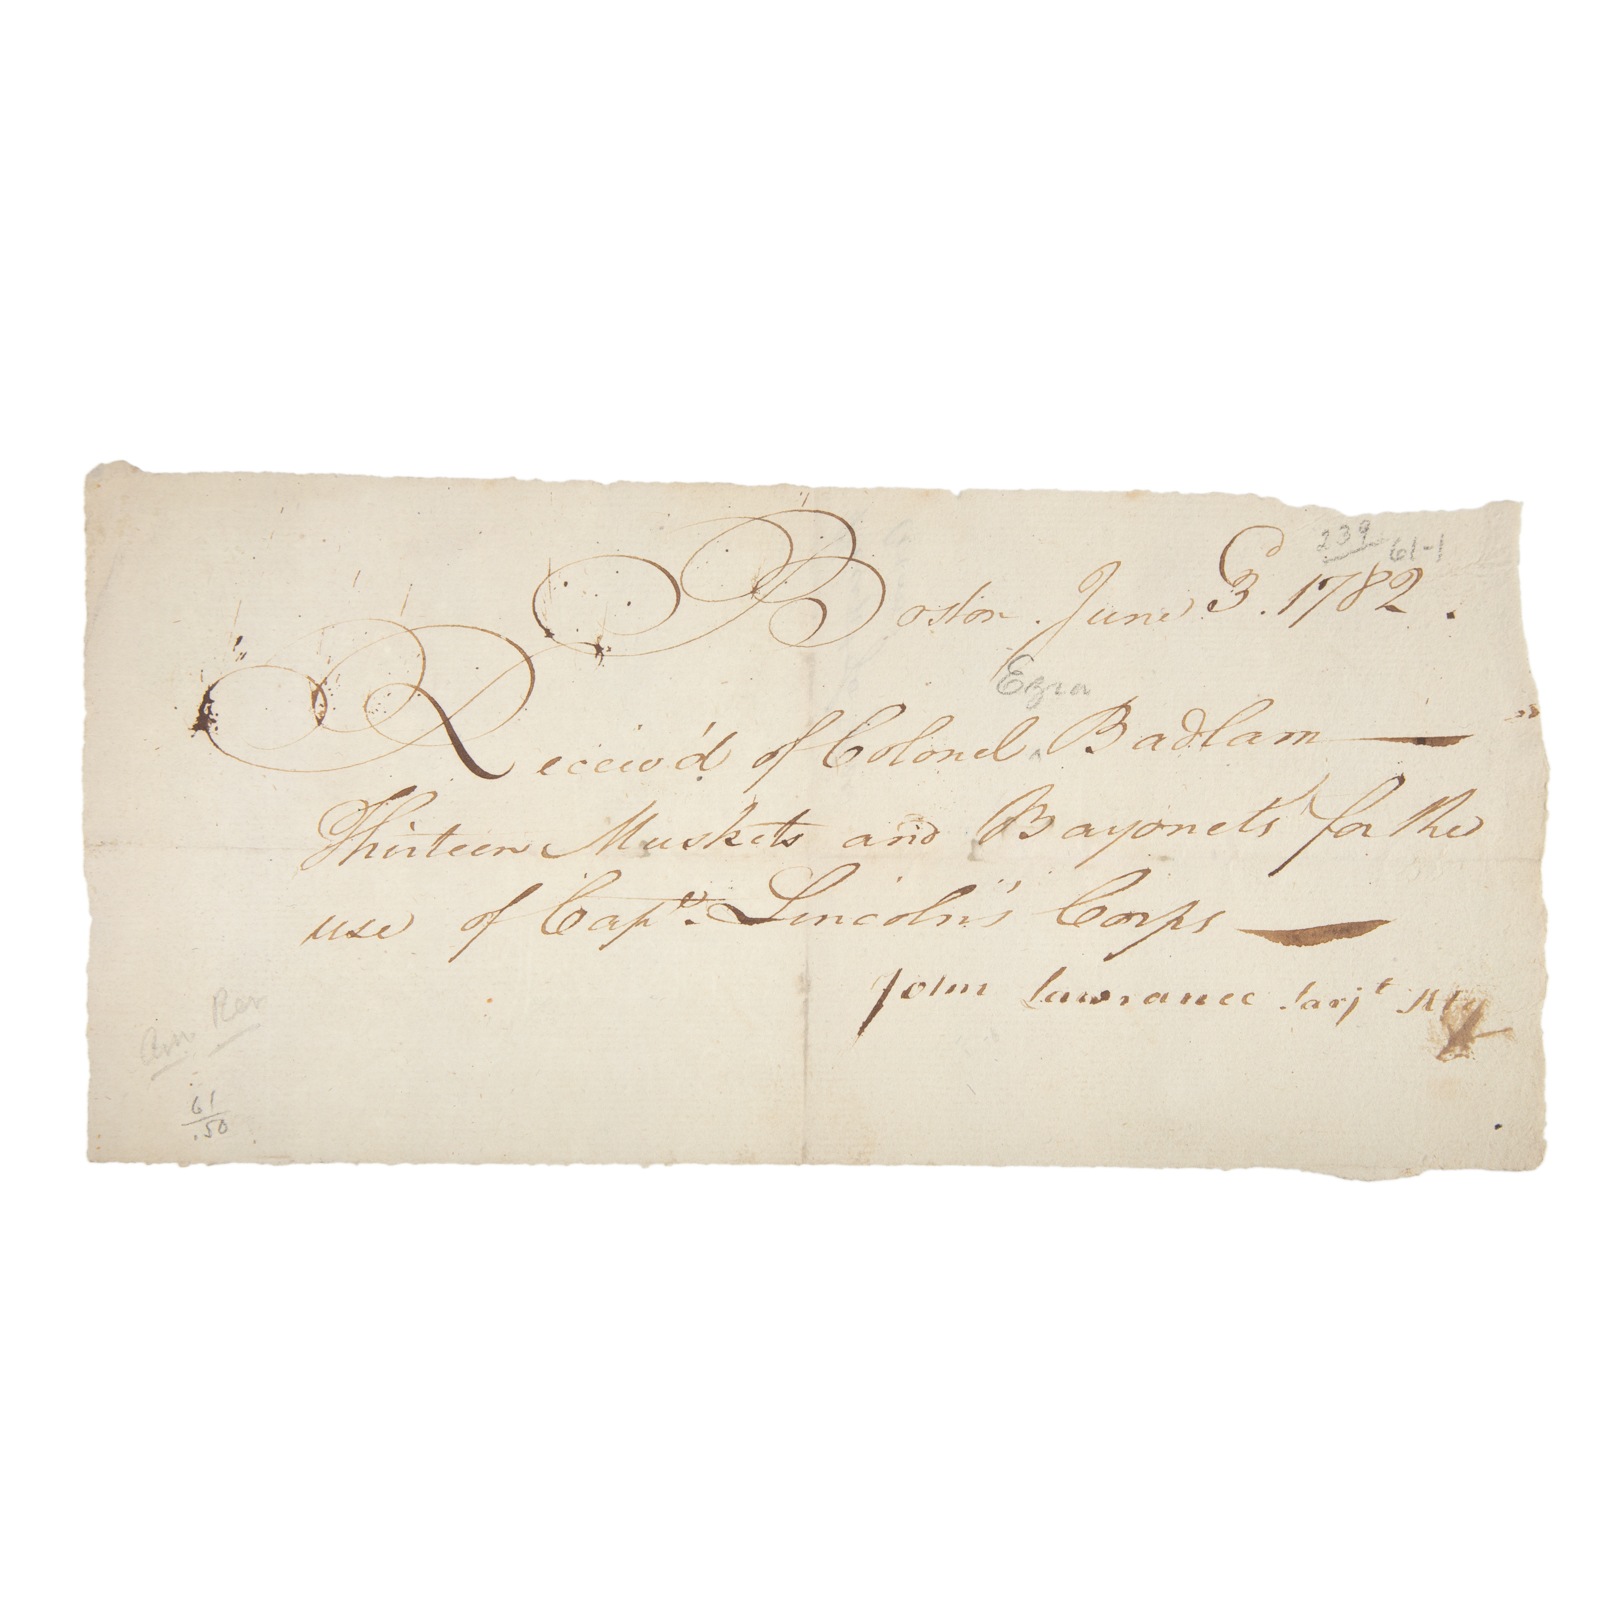 239 61-1
Boston. June 3. 1782.
Ezra
Receiv'd of Colonel ^ Badlam
Thirteen Muskets and Bayonets for the
use of Capt. Lincoln's Corps
John Lawrance Sarjt
Am. Rev
61
.50